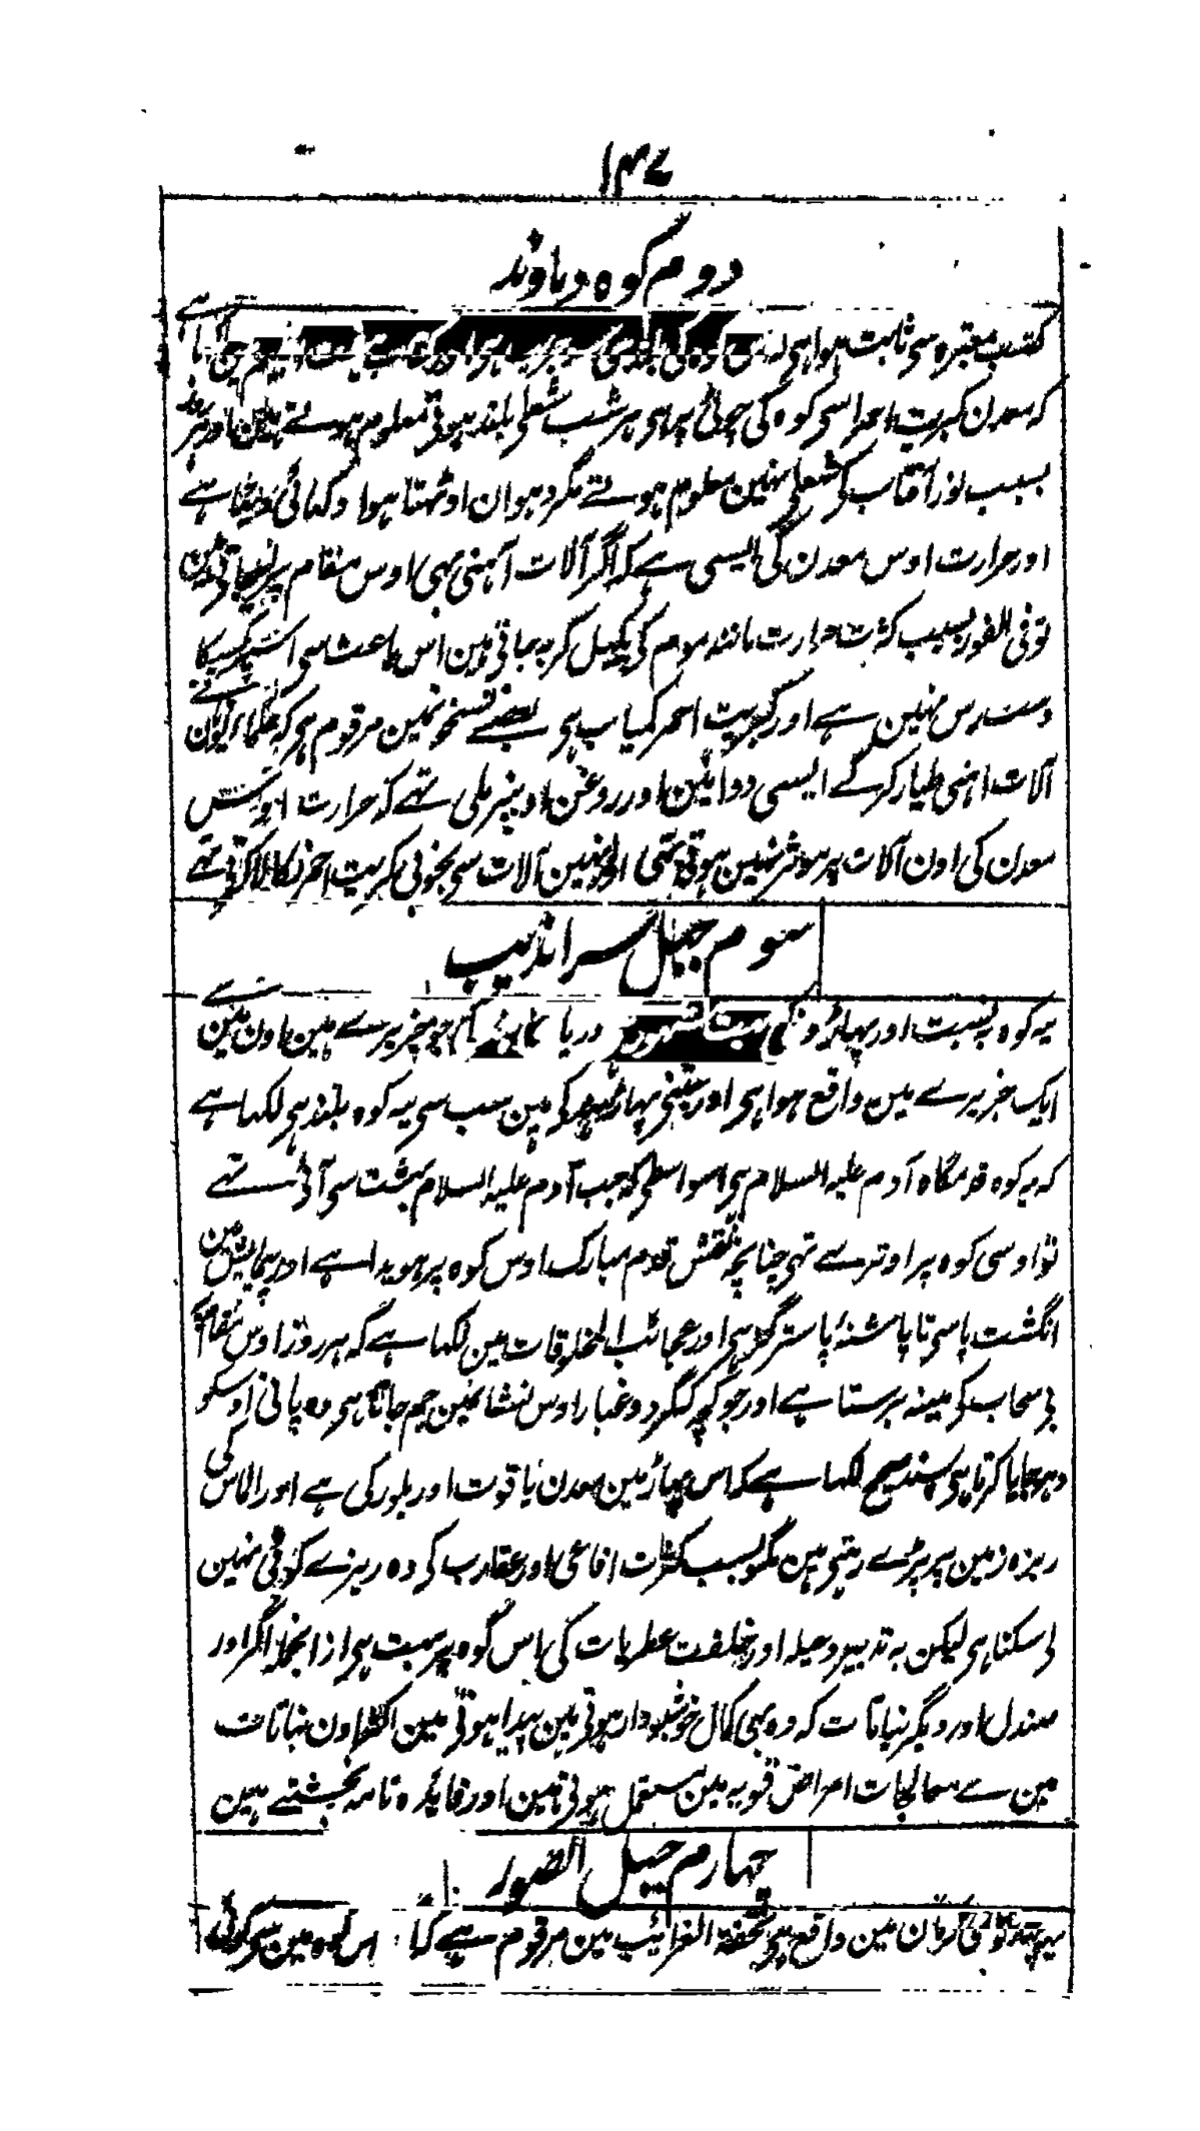 ۱۴۷
دوم کوہ دماوند
کتب معتبرہ سی ثابت ہوا ہی کہ اس کوہ کی بلندی
کہ معدن کبریت احمر اسی کوہ کی چوٹی پر ہی ہر شب شعلی بلند ہوتی معلوم ہوتے ہین اور ہر روز
بسبب نور آفتاب کی شعلی نہین معلوم ہوتے مگر دہوان اوٹھتا ہوا دکھائی دیتا ہے
اور حرارت اوس معدن کی ایسی ہے کہ اگر آلات آہنی بھی اوس مقام پر لیجاتی ہین
تو فی الفور بسبب کثرت حرارت مانند موم کی پگھل کر بہ جاتی ہین اس باعث سی اسپر کسیکا
دست رس نہین ہے اور کبریت احمر کمیاب ہی بعضے نسخونمین مرقوم ہی کہ حکماء یونان نے
آلات اہنی طیار کر کے ایسی دوائین اور روغن اونپر ملی تھے کہ حرارت اوس
معدن کی اون آلات پر موثر نہین ہوتی تھی اور اونہین آلات سی بخوبی کبریت احمر نکالا کرتی تھے
سوم جبل سراندیب
یہ کوہ بہ نسبت اور پہاڑونکی بہت مشہور ہے دریا جو جزیرے ہین اون مین سے
ایک جزیرے مین واقع ہوا ہی اور جتنی پہاڑ ہند کی ہین سب سی یہ کوہ بلند ہی لکھا ہے
کہ یہ کوہ قدمگاہ آدم علیہ السلام ہی اسواسطی کہ جب آدم علیہ السلام بہشت سی آئی تھے
تو اوسی کوہ پر اوترے تھی چنانچہ نقش قدم مبارک اوس کوہ پر ہویدا ہے اور پیمایش مین
انگشت پا سی تا پاشنۂ پا ستر گز ہی اور عجائب المخلوقات مین لکھا ہے کہ ہر روز اوس مقام پر
بی سحاب کی مینہ برستا ہے اور جو کچھ گرد و غبار اوس نشانمین جم جاتا ہی وہ پانی اوسکو
دہو جایا کرتا ہی بسند صحیح لکھا ہے کہ اس پہاڑ مین معدن یاقوت اور بلور کی ہے اور الماس کی
ریزہ زمین پر پڑے رہتی ہین مگر بسبب کثرت افاعی اور عقارب کی وہ ریزے کوئی نہین
لی سکتا ہی لیکن بہ تدبیر و حیلہ اور خلفت عطریات کی اس کوہ پر بہت ہی از انجملہ اگر اور
صندل اور دیگر نباتات کہ وہ بھی کمال خوشبودار ہوتی ہین پیدا ہوتی ہین اکثر اون نباتات
مین سے معالجات امراض قویہ مین مستعمل ہوتی ہین اور فایدہ تامہ بخشتے ہین
چہارم جبل الصور
کرمان مین واقع ہی تحفۃ الغرائب مین مرقوم ہے کہ اس کوہ مین سی کوئی